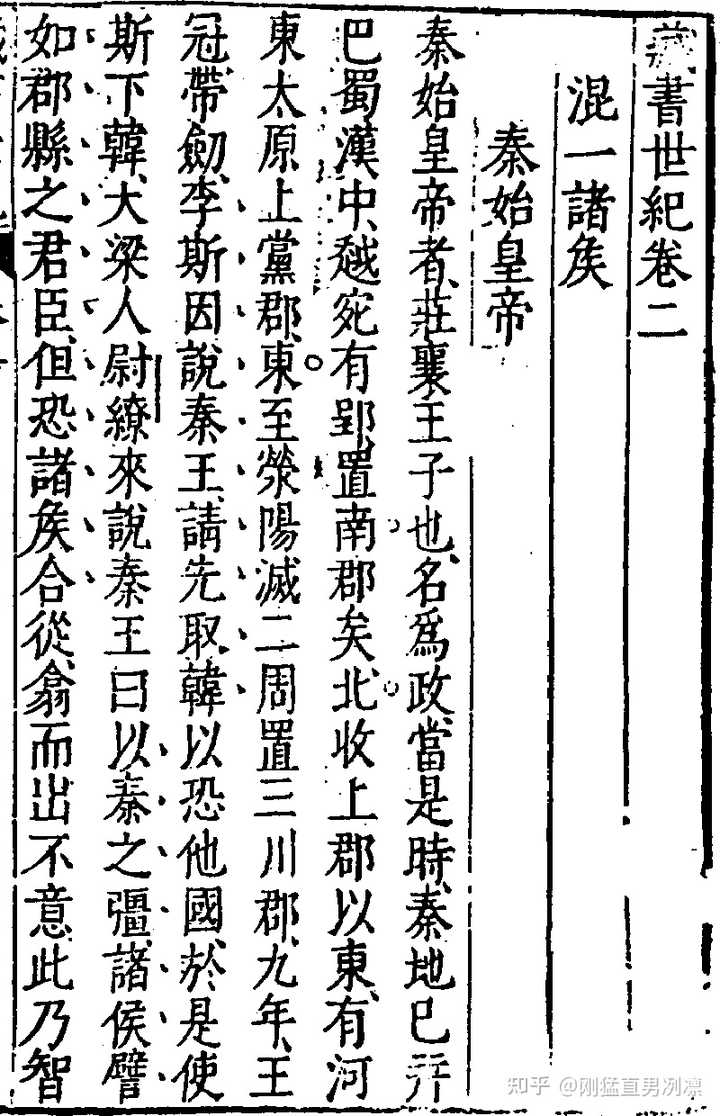 藏書世紀卷二
混一諸矦
秦始皇帝
秦始皇帝者、莊襄王子也、名爲政、當是時、秦地已幷
巴蜀漢中、越宛有郢、置南郡矣、北收上郡以東、有河
東太原上黨郡、東至滎陽滅二周置三川郡、九年、王
冠、帶劒、李斯因說秦王、請先取韓以恐他國、於是使
斯下韓、大梁人尉繚來說秦王曰以秦之彊、諸侯譬
如郡縣之君臣、但恐諸矦合從、翕而出不意此乃智
知乎 @刚猛直男冽凛